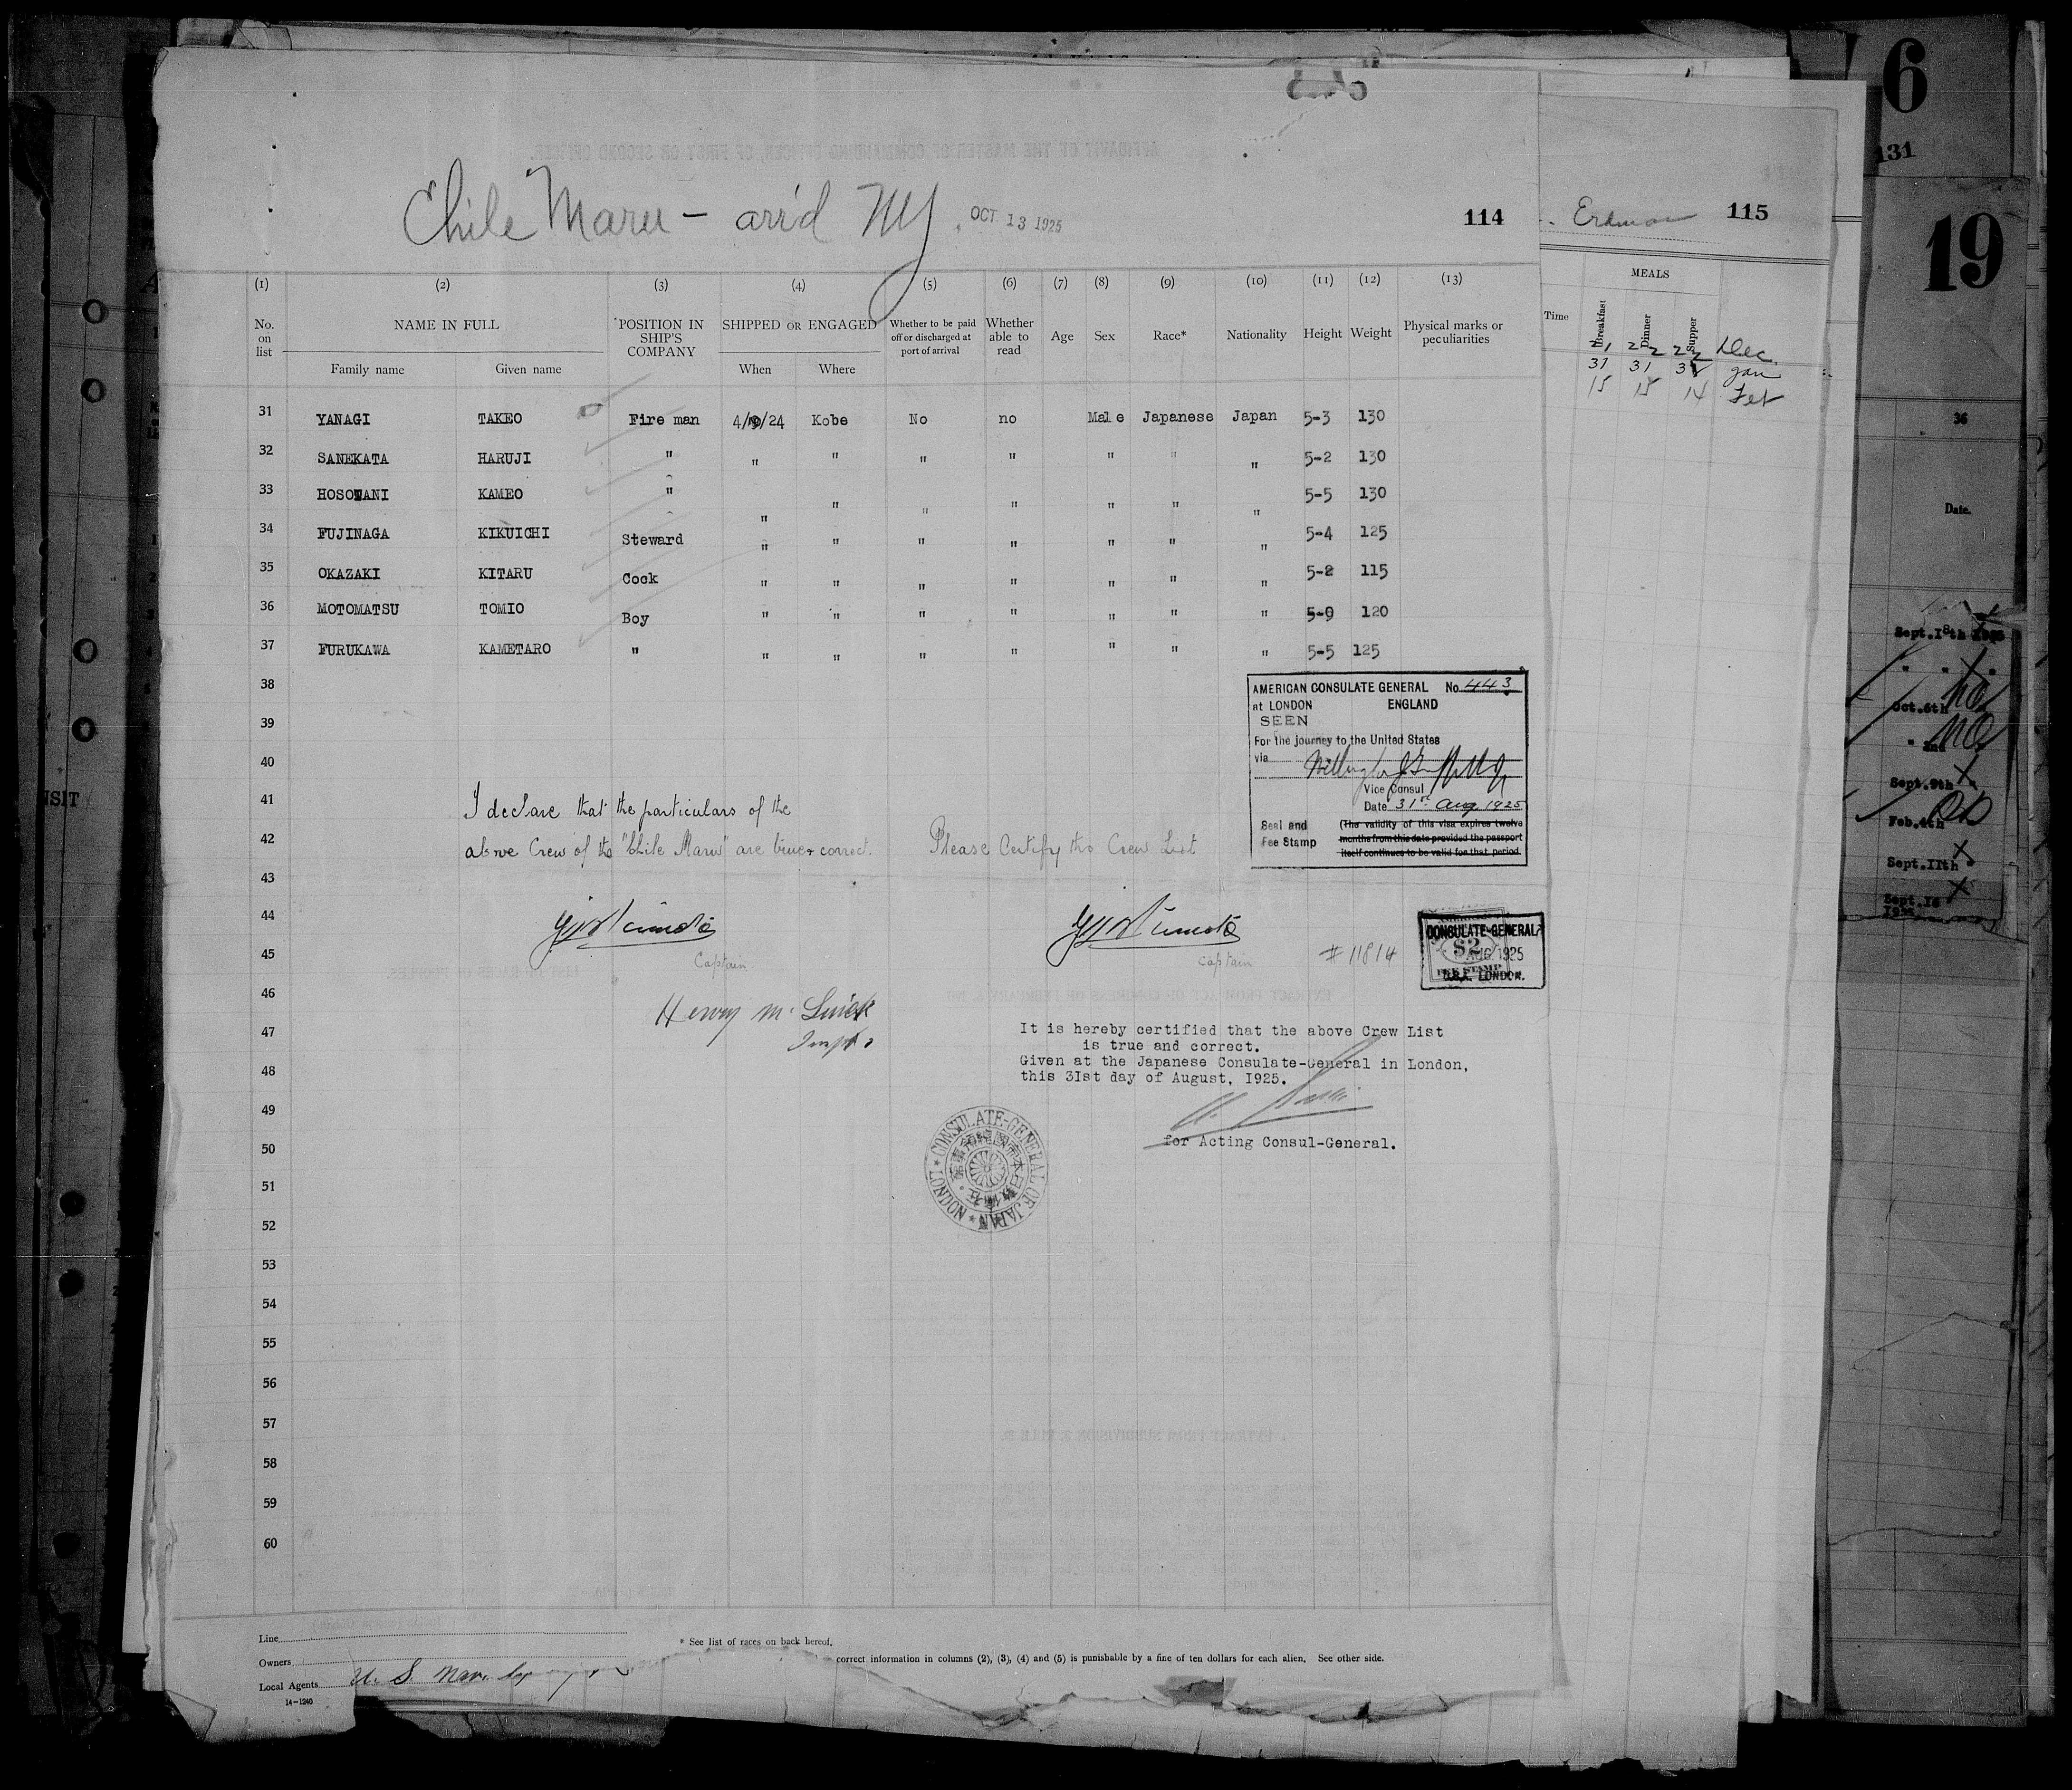 6
131
19
Chile Maru - arr'd NY. OCT 13 1925
114
115
MEALS
Time Breakfast Dinner Supper
21 22 22 Dec.
31 31 31 Jan
15 15 14 Feb
(1) (2) (3) (4) (5) (6) (7) (8) (9) (10) (11) (12) (13)
No. on list NAME IN FULL POSITION IN SHIP'S COMPANY SHIPPED OR ENGAGED Whether to be paid off or discharged at port of arrival Whether able to read Age Sex Race* Nationality Height Weight Physical marks or peculiarities
Family name Given name When Where
31 YANAGI TAKEO Fire man 4/9/24 Kobe No no Male Japanese Japan 5-3 130
32 SANEKATA HARUJI " " " " " " " " 5-2 130
33 HOSOTANI KAMEO " " " " " " " " 5-5 130
34 FUJINAGA KIKUICHI Steward " " " " " " " 5-4 125
35 OKAZAKI KITARU Cook " " " " " " " 5-2 115
36 MOTOMATSU TOMIO Boy " " " " " " " 5-0 120
37 FURUKAWA KAMETARO " " " " " " " " 5-5 125
38
39
40
41
42
43
44
45
46
47
48
49
50
51
52
53
54
55
56
57
58
59
60
AMERICAN CONSULATE GENERAL No. 443
at LONDON ENGLAND
SEEN
For the journey to the United States
via
Vice Consul
Date 31st Aug. 1925
Seal and Fee Stamp
(The validity of this visa expires twelve
months from this date provided the passport
itself continues to be valid for that period.
I declare that the particulars of the
above Crew of the "Chile Maru" are true & correct.
Please Certify this Crew List
Captain
Captain
# 11814
CONSULATE-GENERAL
$2
AUG. 1925
FEE STAMP
U.S.A. LONDON.
Henry M.
It is hereby certified that the above Crew List
is true and correct.
Given at the Japanese Consulate-General in London,
this 31st day of August, 1925.
for Acting Consul-General.
CONSULATE-GENERAL OF JAPAN
LONDON
Line
Owners
Local Agents U. S. Nav.
14-1240
* See list of races on back hereof.
correct information in columns (2), (3), (4) and (5) is punishable by a fine of ten dollars for each alien. See other side.
36
Date.
Sept.18th
Oct.6th no
" 2nd no
Sept.9th
Feb.4th
Sept.11th
Sept.16